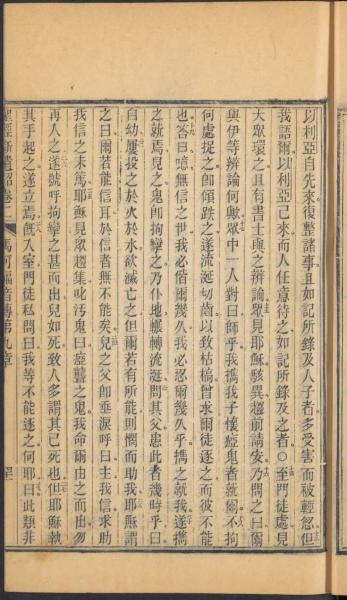 以利亞自先來復整諸事且如記所錄及人子者多受害而被輕忽但
我語爾以利亞已來而人任意待之如記所錄及之者○至門徒處見
大眾環之且有書士與之辨論眾見耶穌駭異趨前請安乃問之曰爾
與伊等辨論何與眾中一人對曰師乎我攜我子懷瘂鬼者就爾不拘
何處捉之即傾跌之遂流涎切齒以致枯槁曾求爾徒逐之而彼不能
也答曰噫無信之世我必偕爾幾久我必忍爾幾久乎攜之就我遂攜
之就焉見之鬼即拘攣之乃仆地輾轉流涎問其父患此者幾時乎曰
自幼屢投之於火於水欲滅亡之但爾若有所能則憫而助我耶穌謂
之曰爾若能信耳於信者無不能矣兒之父即垂淚呼曰主我信求助
我信之未篤耶穌見眾趨集叱污鬼曰瘂聾之鬼我命爾由之而出勿
再入之遂號呼拘攣之甚而出兒如死致人多謂其已死也但耶穌執
其手起之遂立焉既入室門徒私問曰我等不能逐之何耶曰此類非
聖經新遺詔卷二 馬可福音傳第九章